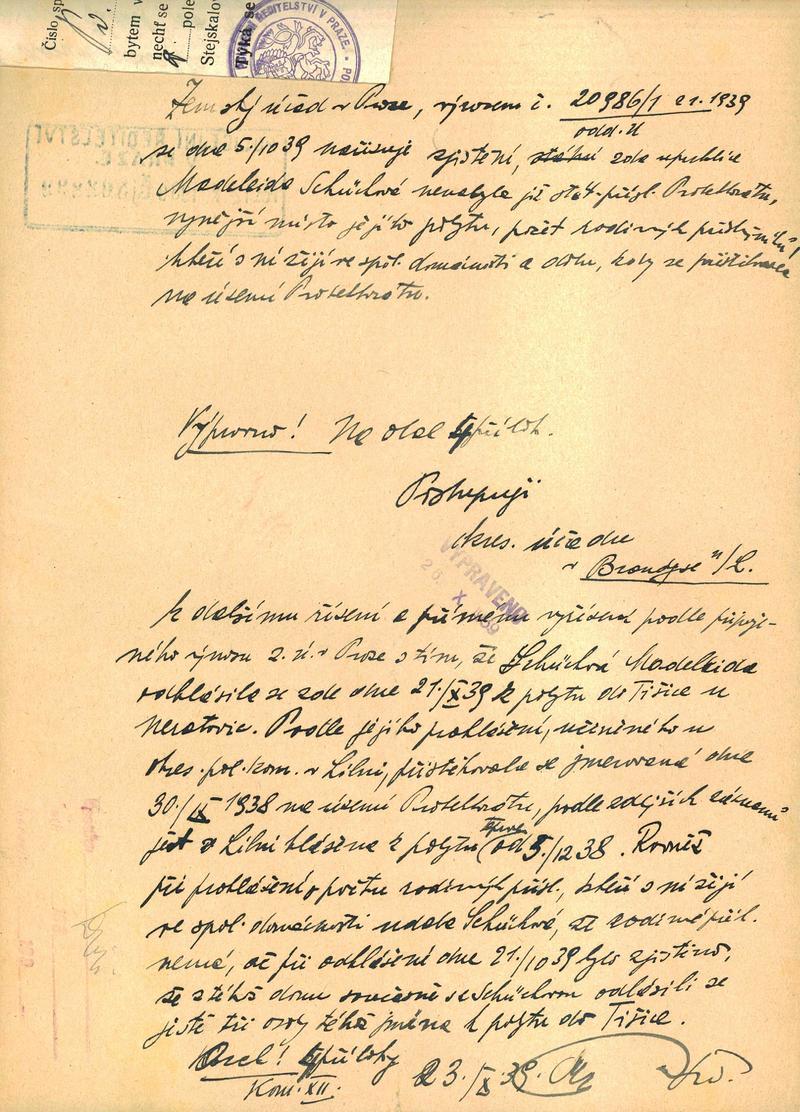 Číslo sp
bytem v
nechť se
pole
Stejskalov
Týká se
ŘEDITELSTVÍ V PRAZE. PO
Zemský úřad v Praze, výnosem č. 20986/1 21. 1939
odd. 21
ze dne 5./10 39 nařizuje zjistění, zda uprchlice
Madeleida Schückvá nenabyla již stát. přísl. Protektorátu,
nynější místo jejího pobytu, počet rodinných příslušníků,
kteří s ní žijí ve spol. domácnosti a dobu, kdy se přistěhovala
na území Protektorátu.
Vypraveno! Na 4 příloh.
Postupuji
okres. úřadu
v Brandýse n/L.
VYPRAVENO
26. X. 1939
k dalšímu řízení a přímému vyřízení podle připoje-
ného výnosu z. ú. v Praze s tím, že Schückvá Madeleida
odhlásila se zde dne 21./X 39 k pobytu do Tišice u
Neratovic. Podle jejího prohlášení, učiněného u
okres. pol. kom. v Libni, přistěhovala se jmenovaná dne
30./IX 1938 na území Protektorátu, podle zdejších záznamů
jest v Libni hlášena k pobytu teprve od 5./12 38. Rovněž
při prohlášení o počtu rodinných přísl., kteří s ní žijí
ve spol. domácnosti udala Schückvá, že rodinné přísl.
nemá, ač při odhlášení dne 21./10 39 bylo zjištěno,
že z téhož domu současně se Schückvou odhlásili se
ještě tři osoby téhož jména k pobytu do Tišice.
4 přílohy
Kom. XII. 23./X 39.